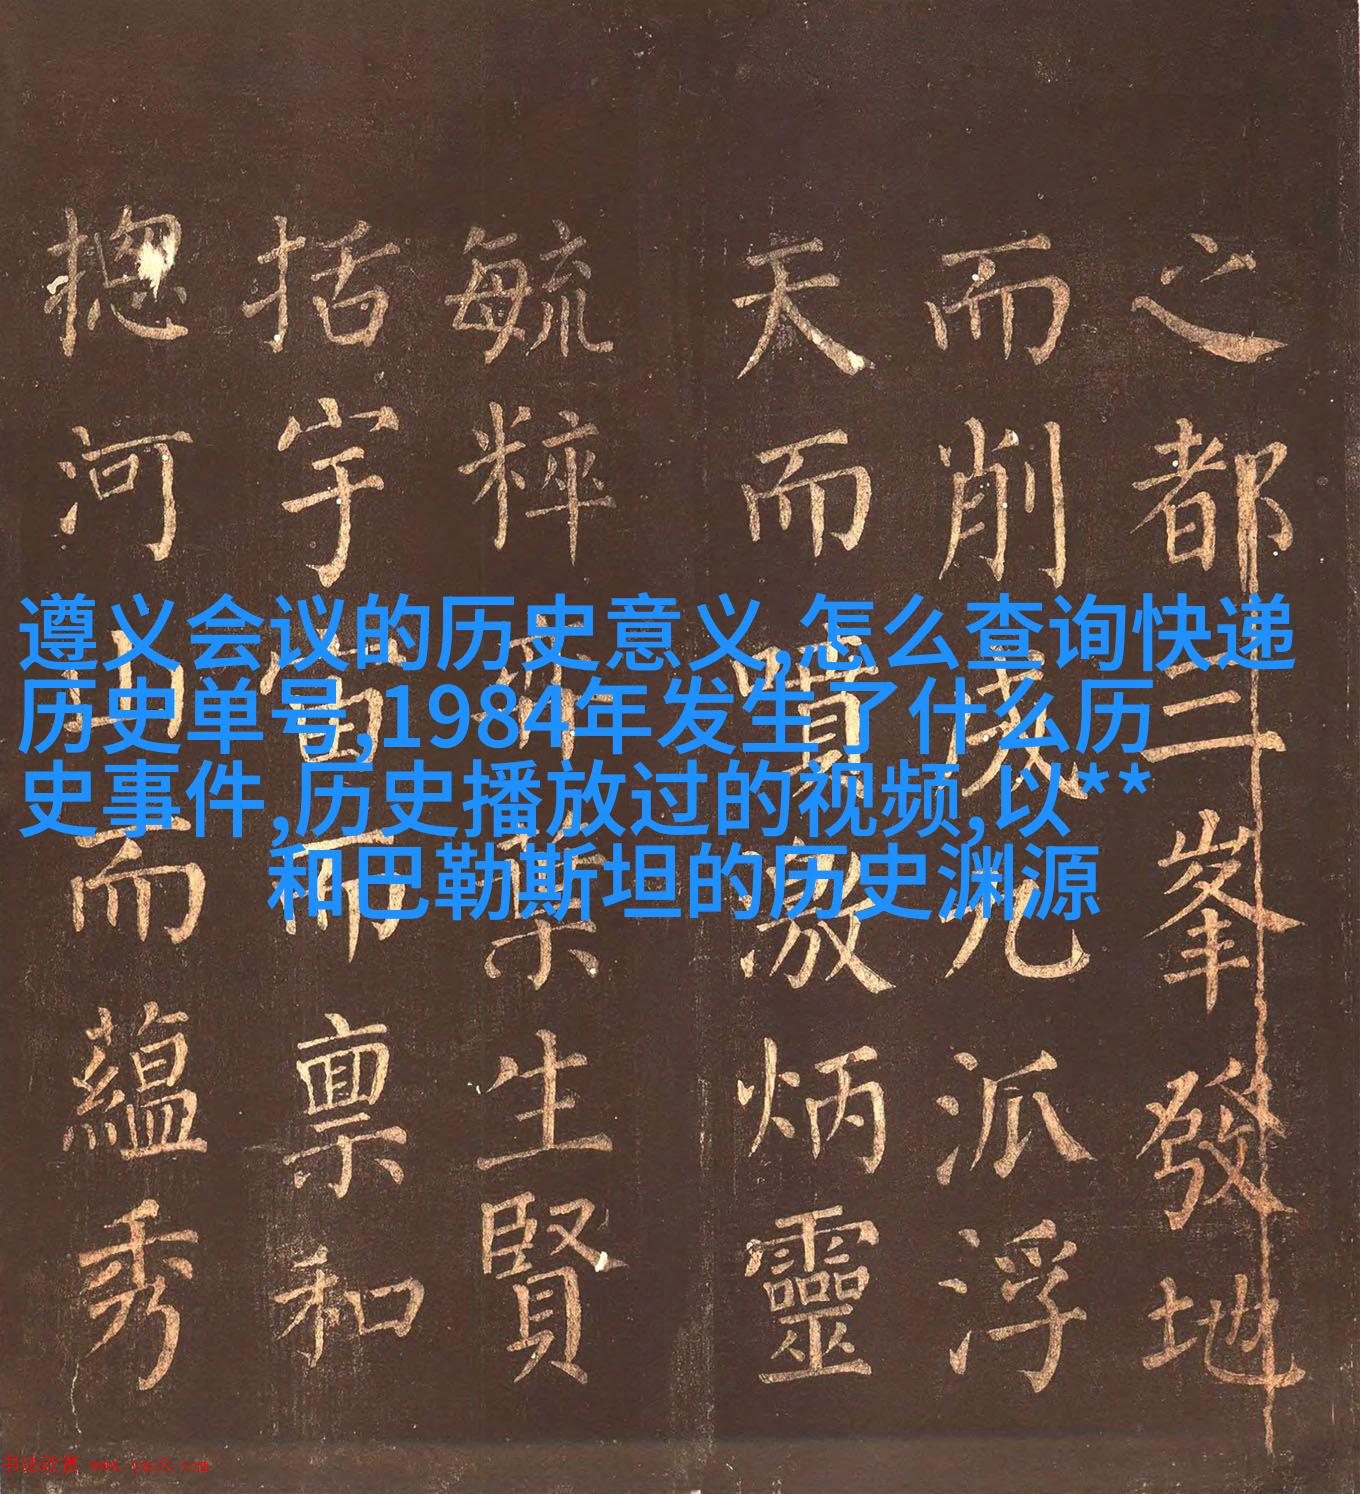 之都三峯發地
而削成九派浮
天而噴激炳靈
毓粹生賢
括宇宙而禀和
揔河山而蘊秀
遵义会议的历史意义,怎么查询快递
历史单号,1984年发生了什么历
史事件,历史播放过的视频,以**
和巴勒斯坦的历史渊源
书法欣赏 www.yac8.com